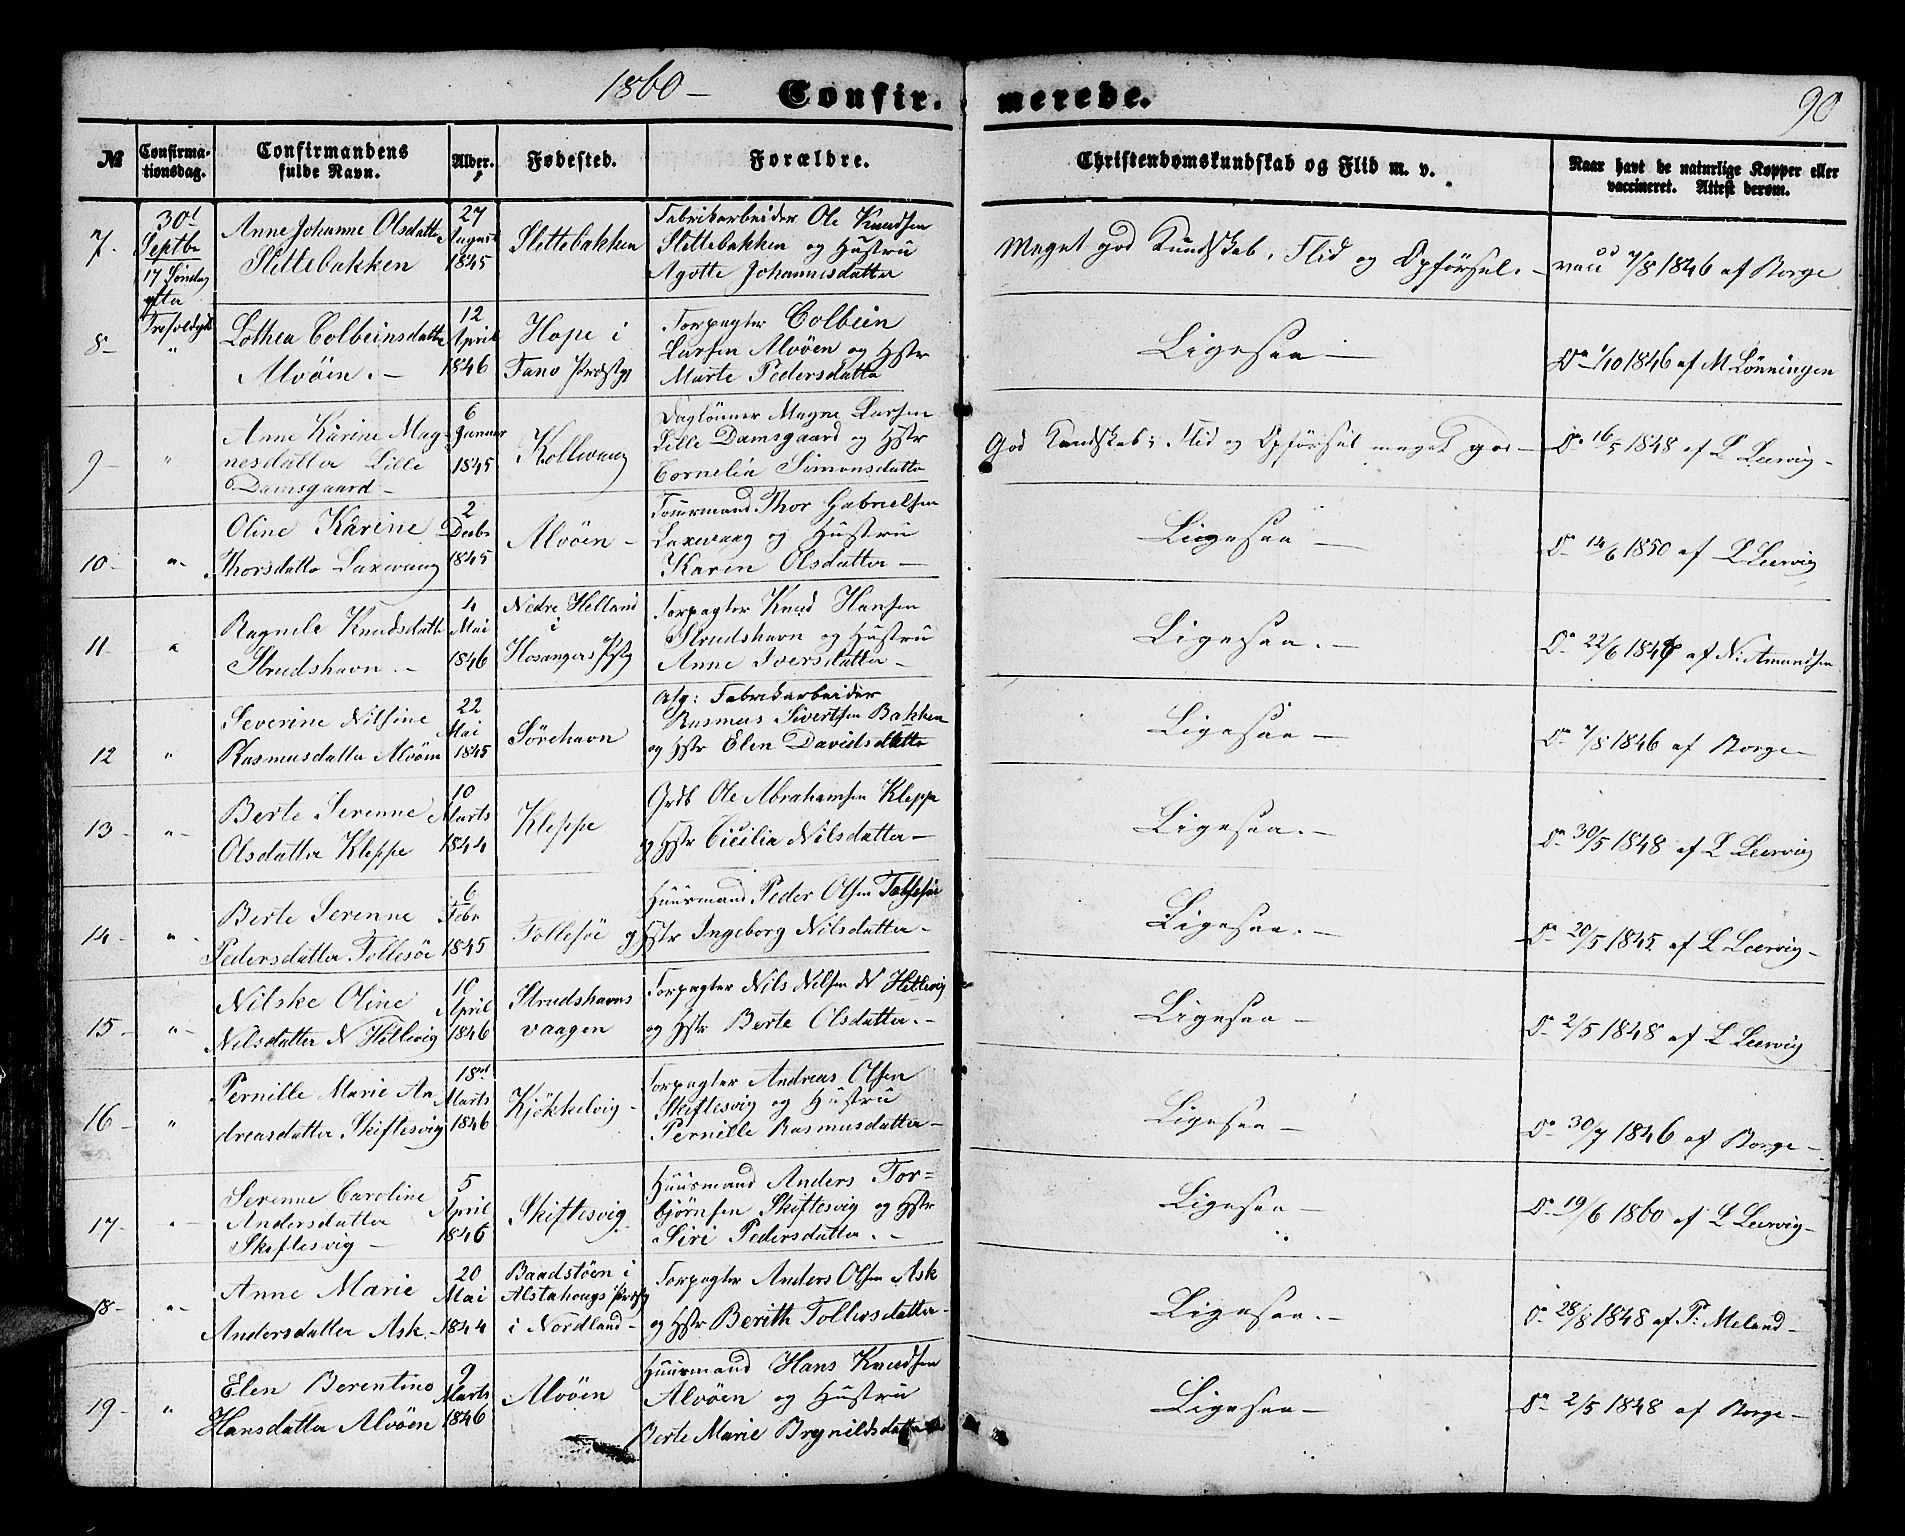 1860 –
Confir- merede.
90
№
Confirma-
tionsdag.
Confirmandens
fulde Navn.
Alder.
Fødested.
Forældre.
Christendomskundskab og Flid m. v.
Naar havt de naturlige Kopper eller
vaccineret. Attest derom.
7.
30t
Septbr
17 Søndag
efter
Trefoldigh
Anne Johanne Olsdatter
Slettebakken
27
August
1845
Slettebakken
Fabrikarbeider Ole Knudsen
Slettebakken og Hustru
Agotte Johannesdatter
Meget god Kundskab, Flid og Opførsel. –
vacc 7/8 1846 af Borge
8 –
"
Lothea Colbeinsdatter
Alvøen. –
12
April
1846
Hope i
Fane Præstgj
Forpagter Colbein
Larsen Alvøen og Hstr
Marte Pedersdatter
Ligesaa –
Do 1/10 1846 af M Lönningen
9 –
"
Anne Karine Mag-
nesdatter Lille
Damsgaard –
6
Januar
1845
Kollevaag
Daglönner Magne Larsen
Lille Damsgaard og Hstr
Cornelia Simonsdatter
God Kundskab; Flid og Opførsel meget god –
Do 16/5 1848 af L Leervig –
10 –
"
Oline Karine
Thorsdatter Laxevaag
2
Decbr
1845
Alvøen –
Tourmand Thor Gabrielsen
Laxevaag og Hustru
Karen Olsdatter –
Ligesaa –
Do 14/6 1850 af L Leervig
11 –
"
Ragnele Knudsdatter
Strudshavn. –
4
Mai
1846
Nedre Helland
i
Hosangers Pstgj
Forpagter Knud Hansen
Strudshavn og Hustru
Anne Iversdatter –
Ligesaa. –
Do 22/6 1846 af N: Amundsen
12
"
Severine Nilsine
Rasmusdatter Alvøen
22
Mai
1845
Sörehavn
Afg: Fabrikarbeider
Rasmus Sivertsen Bakken
og Hstr Elen Davidsdatter
Ligesaa –
Do 7/8 1846 af Borge –
13 –
"
Berte Serenne
Olsdatter Kleppe
10
Marts
1844
Kleppe
Grdb Ole Abrahamsen Kleppe
og Hstr Cicilia Nilsdatter –
Ligesaa. –
Do 30/5 1848 af L Leervig
14 –
"
Berte Serenne
Pedersdatter Follesøe
6
Febr
1845
Follesöe
Huusmand Peder Olsen Follesöe
og Hstr Ingeborg Nilsdatter –
Ligesaa. –
Do 20/5 1845 af L Leervig –
15 –
"
Nilske Oline
Nilsdatter N Hetlevig
10
April
1846
Strudshavns
vaagen
Forpagter Nils Nilsen N Hetlevig
og Hstr Berte Olsdatter. –
Ligesaa –
Do 2/5 1848 af L Leervig
16 –
"
Pernille Marie An
dreasdatter Skiftesvig
18de
Marts
1846
Kjökkelvig –
Forpagter Andreas Olsen
Skiftesvig og Hustru
Pernille Rasmusdatter –
Ligesaa –
Do 30/7 1846 af Borge –
17 –
"
Serenne Caroline
Andersdatter
Skiftesvig –
5
April
1846
Skiftesvig
Huusmand Anders Tor-
bjørnsen Skiftesvig og Hstr
Siri Pedersdatter. –
Ligesaa –
Do 19/6 1860 af L Leervig –
18 –
"
Anne Marie
Andersdatter Ask. –
20
Mai
1844
Baadstöen i
Alstahougs Præstgj
i Nordland –
Forpagter Anders Olsen Ask
og Hstr Berith Tollersdatter –
Ligesaa. –
Do 28/8 1848 af P: Meland –
19 –
"
Elen Berentine
Hansdatter Alvøen
9
Marts
1846
Alvöen
Huusmand Hans Knudsen
Alvöen og Hustru
Berte Marie Brynildsdatter
Ligesaa –
Do 2/5 1848 af Borge –